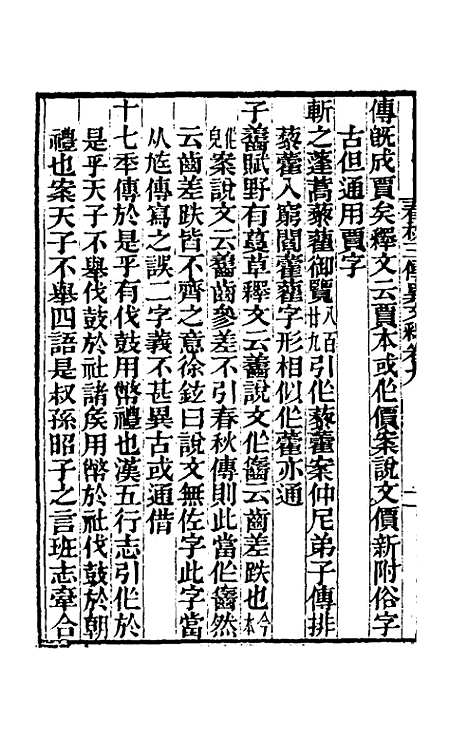 傳旣成賈矣釋文云賈本或作價案說文價新附俗字
古但通用賈字
斬之蓬蒿藜藋御覽八百廿九引作藜藿案仲尼弟子傳排
藜藿入窮閻藿藋字形相似作藿亦通
子齹賦野有蔓草釋文云齹說文作云齒差跌也今本
作皃案說文云齹齒參差不引春秋傳則此當作然
云齒差跌皆不齊之意徐鉉曰說文無佐字此字當
从傳寫之誤二字義不甚異古或通借
十七年傳於是乎有伐鼓用幣禮也漢五行志引作於
是乎天子不舉伐鼓於社諸矦用幣於社伐鼓於朝
禮也案天子不舉四語是叔孫昭子之言班志牽合
春秋三傳異文釋卷九